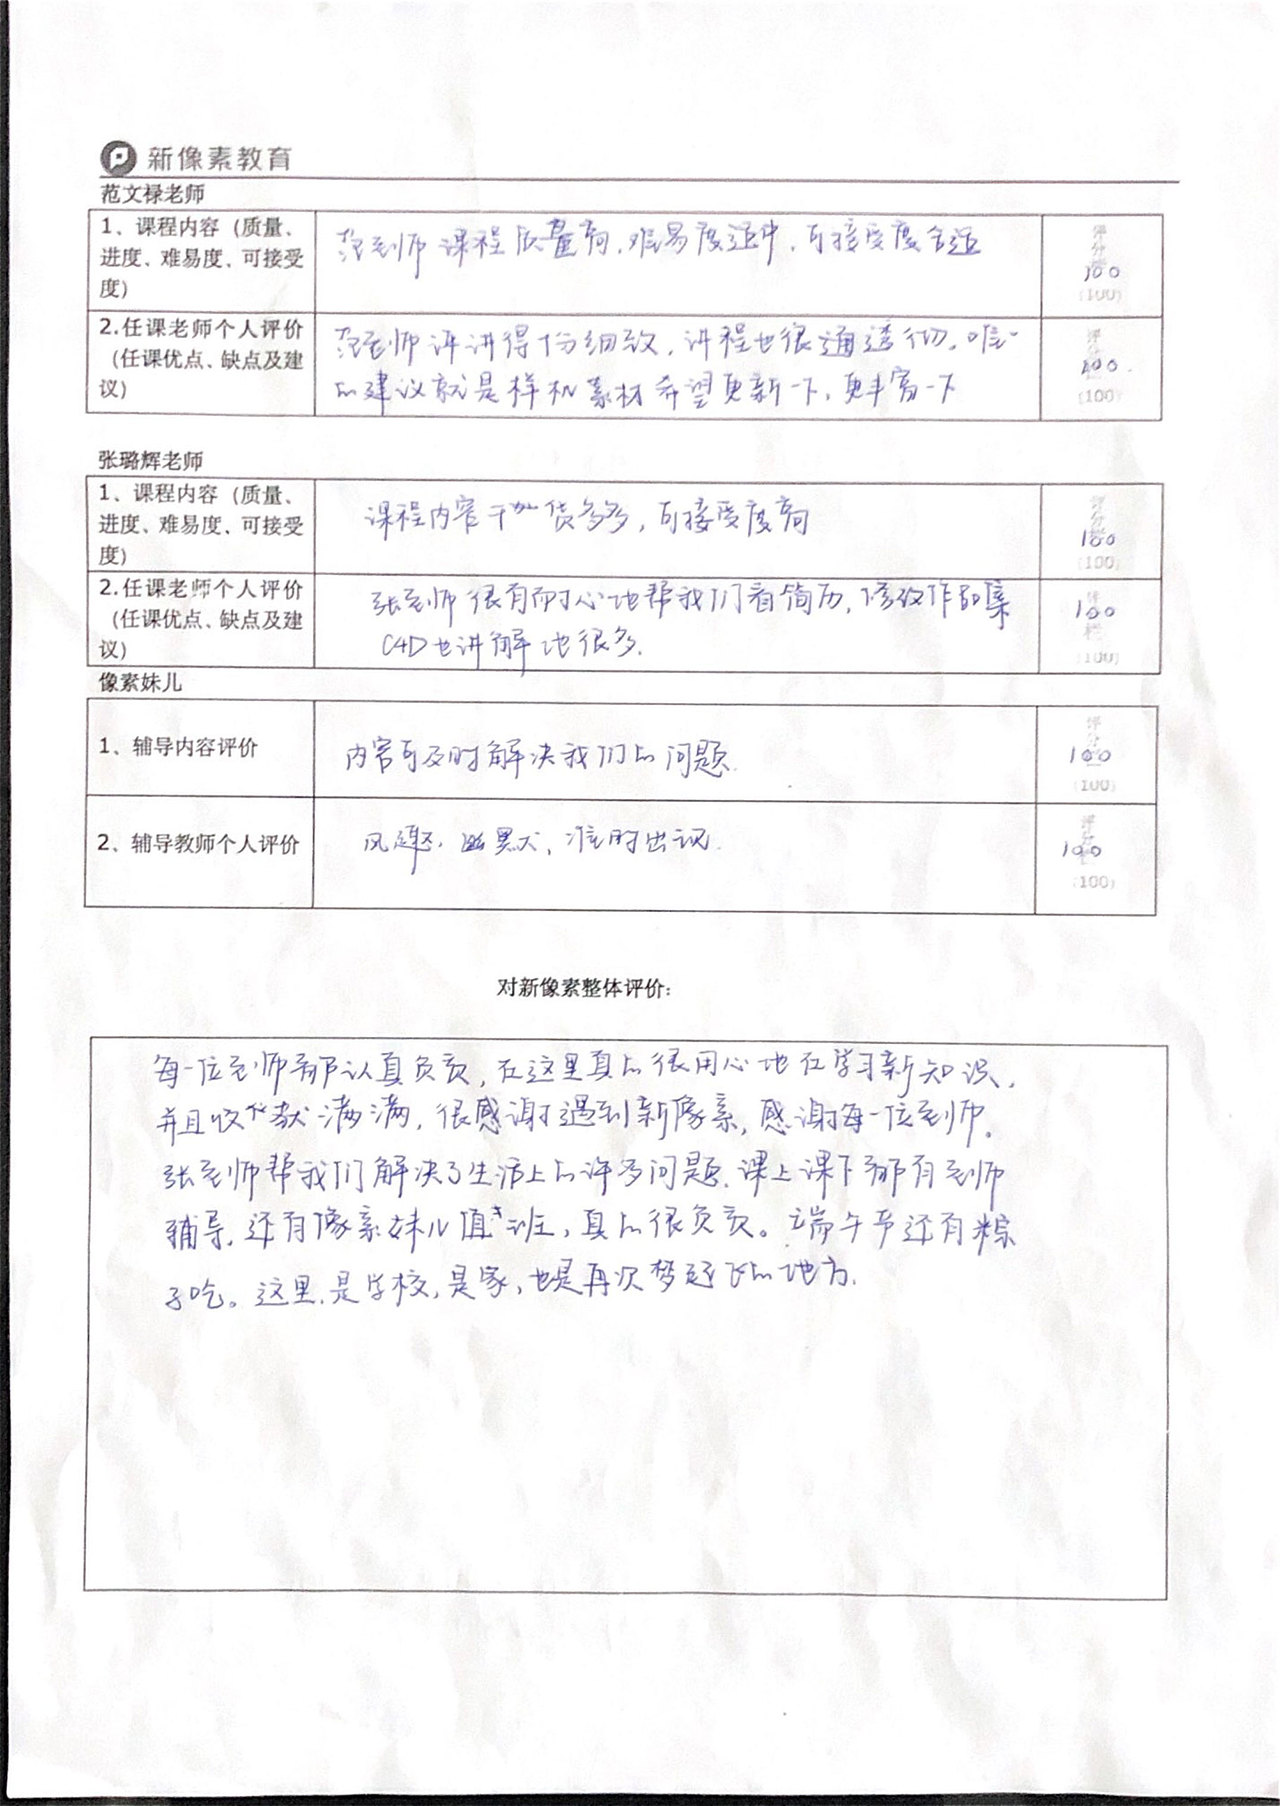 新像素教育
范文禄老师
1、课程内容（质量、
进度、难易度、可接受
度）
范老师课程质量高，难易度适中，可接受度合适
评分栏
100
(100)
2.任课老师个人评价
（任课优点、缺点及建
议）
范老师评讲得十分细致，讲程也很通透彻，唯一
的建议就是样机素材希望更新一下，更丰富一下
评
100
(100)
张璐辉老师
1、课程内容（质量、
进度、难易度、可接受
度）
课程内容干货多多，可接受度高
评分栏
100
(100)
2.任课老师个人评价
（任课优点、缺点及建
议）
张老师很有耐心地帮我们看简历，修改作品集
C4D也讲解地很多.
评
100
栏
(100)
像素妹儿
1、辅导内容评价
内容可及时解决我们的问题.
评分
100
(100)
2、辅导教师个人评价
风趣、幽默，准时出现.
评
100
(100)
对新像素整体评价：
每一位老师都认真负责，在这里真的很用心地在学习新知识，
并且收获满满，很感谢遇到新像素，感谢每一位老师。
张老师帮我们解决了生活上的许多问题.课上课下都有老师
辅导，还有像素妹儿值班，真的很负责。端午节还有粽
子吃。这里，是学校，是家，也是再次梦起飞的地方.